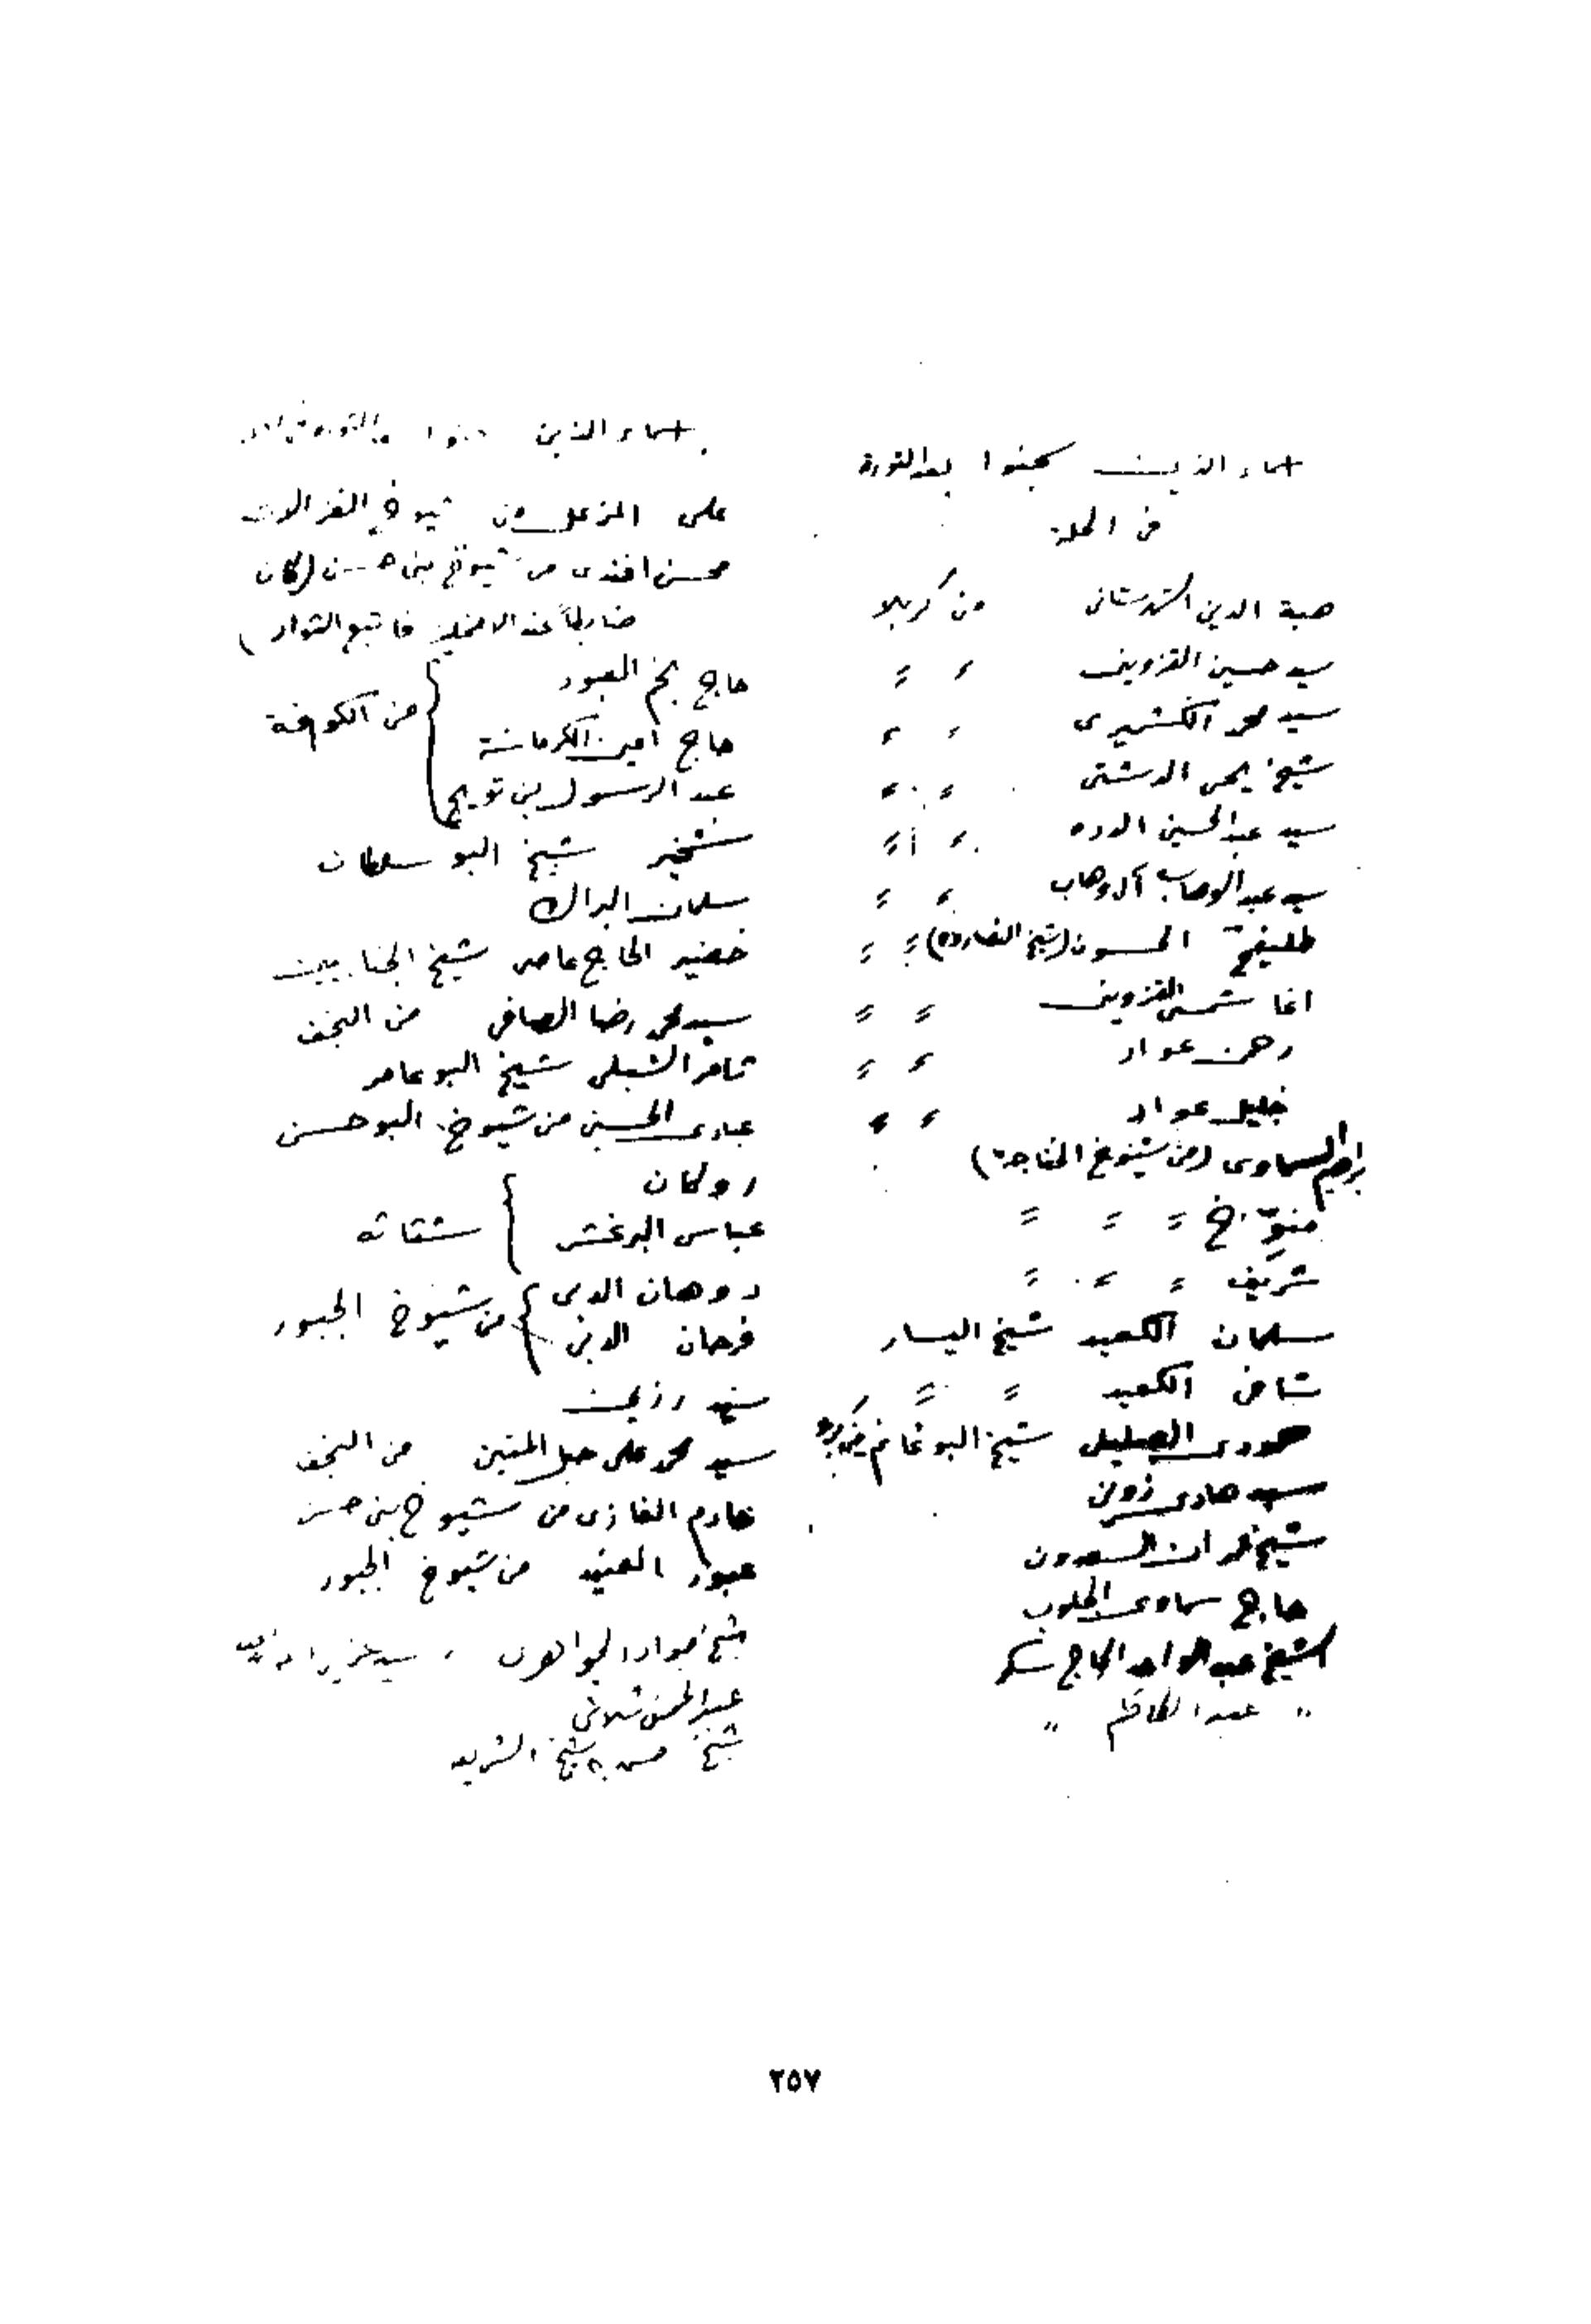 اسماء الذين سجنوا بعد الثورة
في الحلة
هبة الدين الشهرستاني من كربلا
سيد حسين القزويني 〃 〃
سيد محمد الكشميري 〃 〃
شيخ يحيى الرشتي 〃 〃
سيد عبدالحسين الدده 〃 〃
سيد عبدالوهاب آل وهاب 〃 〃
طليفح الحسون (شيخ النصاروه) 〃 〃
اغا شمس القزويني 〃 〃
رحمن عواد 〃 〃
خليل عواد 〃 〃
ابراهيم السماوي (من شيوخ الخفاجة)
〃 〃 〃
شريف 〃 〃 〃
سلمان الكعيد شيخ اليسار
الكعيد 〃 〃
شيخ البو غانم
سيد هادي زوين
شيخ عمران السعدون
حاج سماوي الجلوب
الشيخ عبد الواحد الحاج سكر
〃 عبد الكاظم 〃
اسماء الذين سجنوا
علي المزعل من شيوخ الغزالات
محسن افندي من شيوخ بني حسن (كان
ضابطاً عند الانكليز فاتبع الثوار)
حاج نجم العبود
حاج امين الكرماشة
عبد الرسول بن تويج
من الكوفة
شخير شيخ البو سلطان
سلمان البراك
خضير الحاج عاصي شيخ الجنابيين
سيد محمد رضا الصافي من النجف
الشبلي شيخ البو عامر
عبادي الحسين من شيوخ البو حسن
روكان
عباس البرغش
شثاثه
دوهان الدبي
فرحان الدبي
من شيوخ الجبور
سيد محمد علي حبل المتين من النجف
خادم الغازي من شيوخ بني حسن
عبود العنيد من شيوخ الجبور
شيخ جواد الجواهري ،
عبدالحسن شلاش
شيخ
٢٥٧